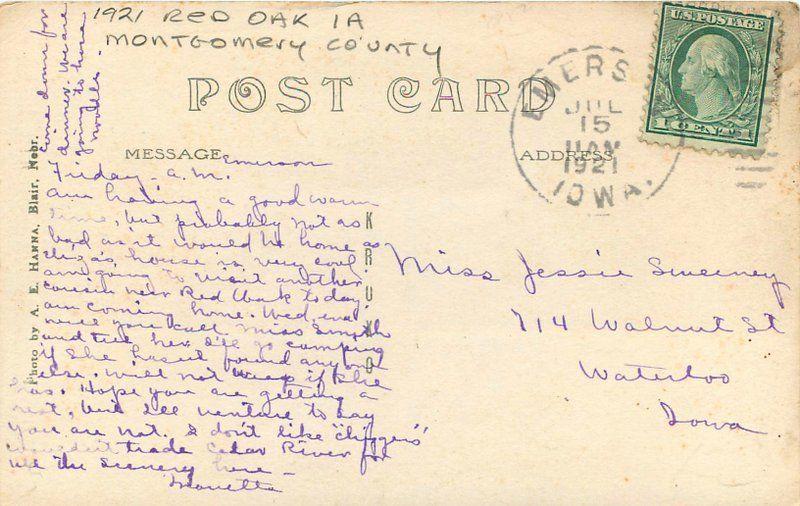 1921 RED OAK IA
MONTGOMERY COUNTY
POST CARD
MESSAGE
ADDRESS
U.S. POSTAGE
1 CENT 1
EMERS
JUL
15
11 AM
1921
IOWA.
Photo by A. E. HANNA, Blair, Nebr.
KRUXO
Emerson
Friday - a.m.
am having a good warm
time, but probably not as
bad as it would be home as
Eliza's house is very cool
am going to visit another
cousin near Red Oak today.
am coming home. Wed. eve.
will you call Miss Smith
and tell her I'll go camping
if she hasn't found any one
else. Will not weep if she
has. Hope you are getting a
rest, but I'll venture to say
you are not. I don't like "chiggers"
wouldn't trade Cedar River for
all the scenery here -
come down for
dinner. We are
going to have
noodles.
Miss Jessie Sweeney
714 Walnut St
Waterloo
Iowa